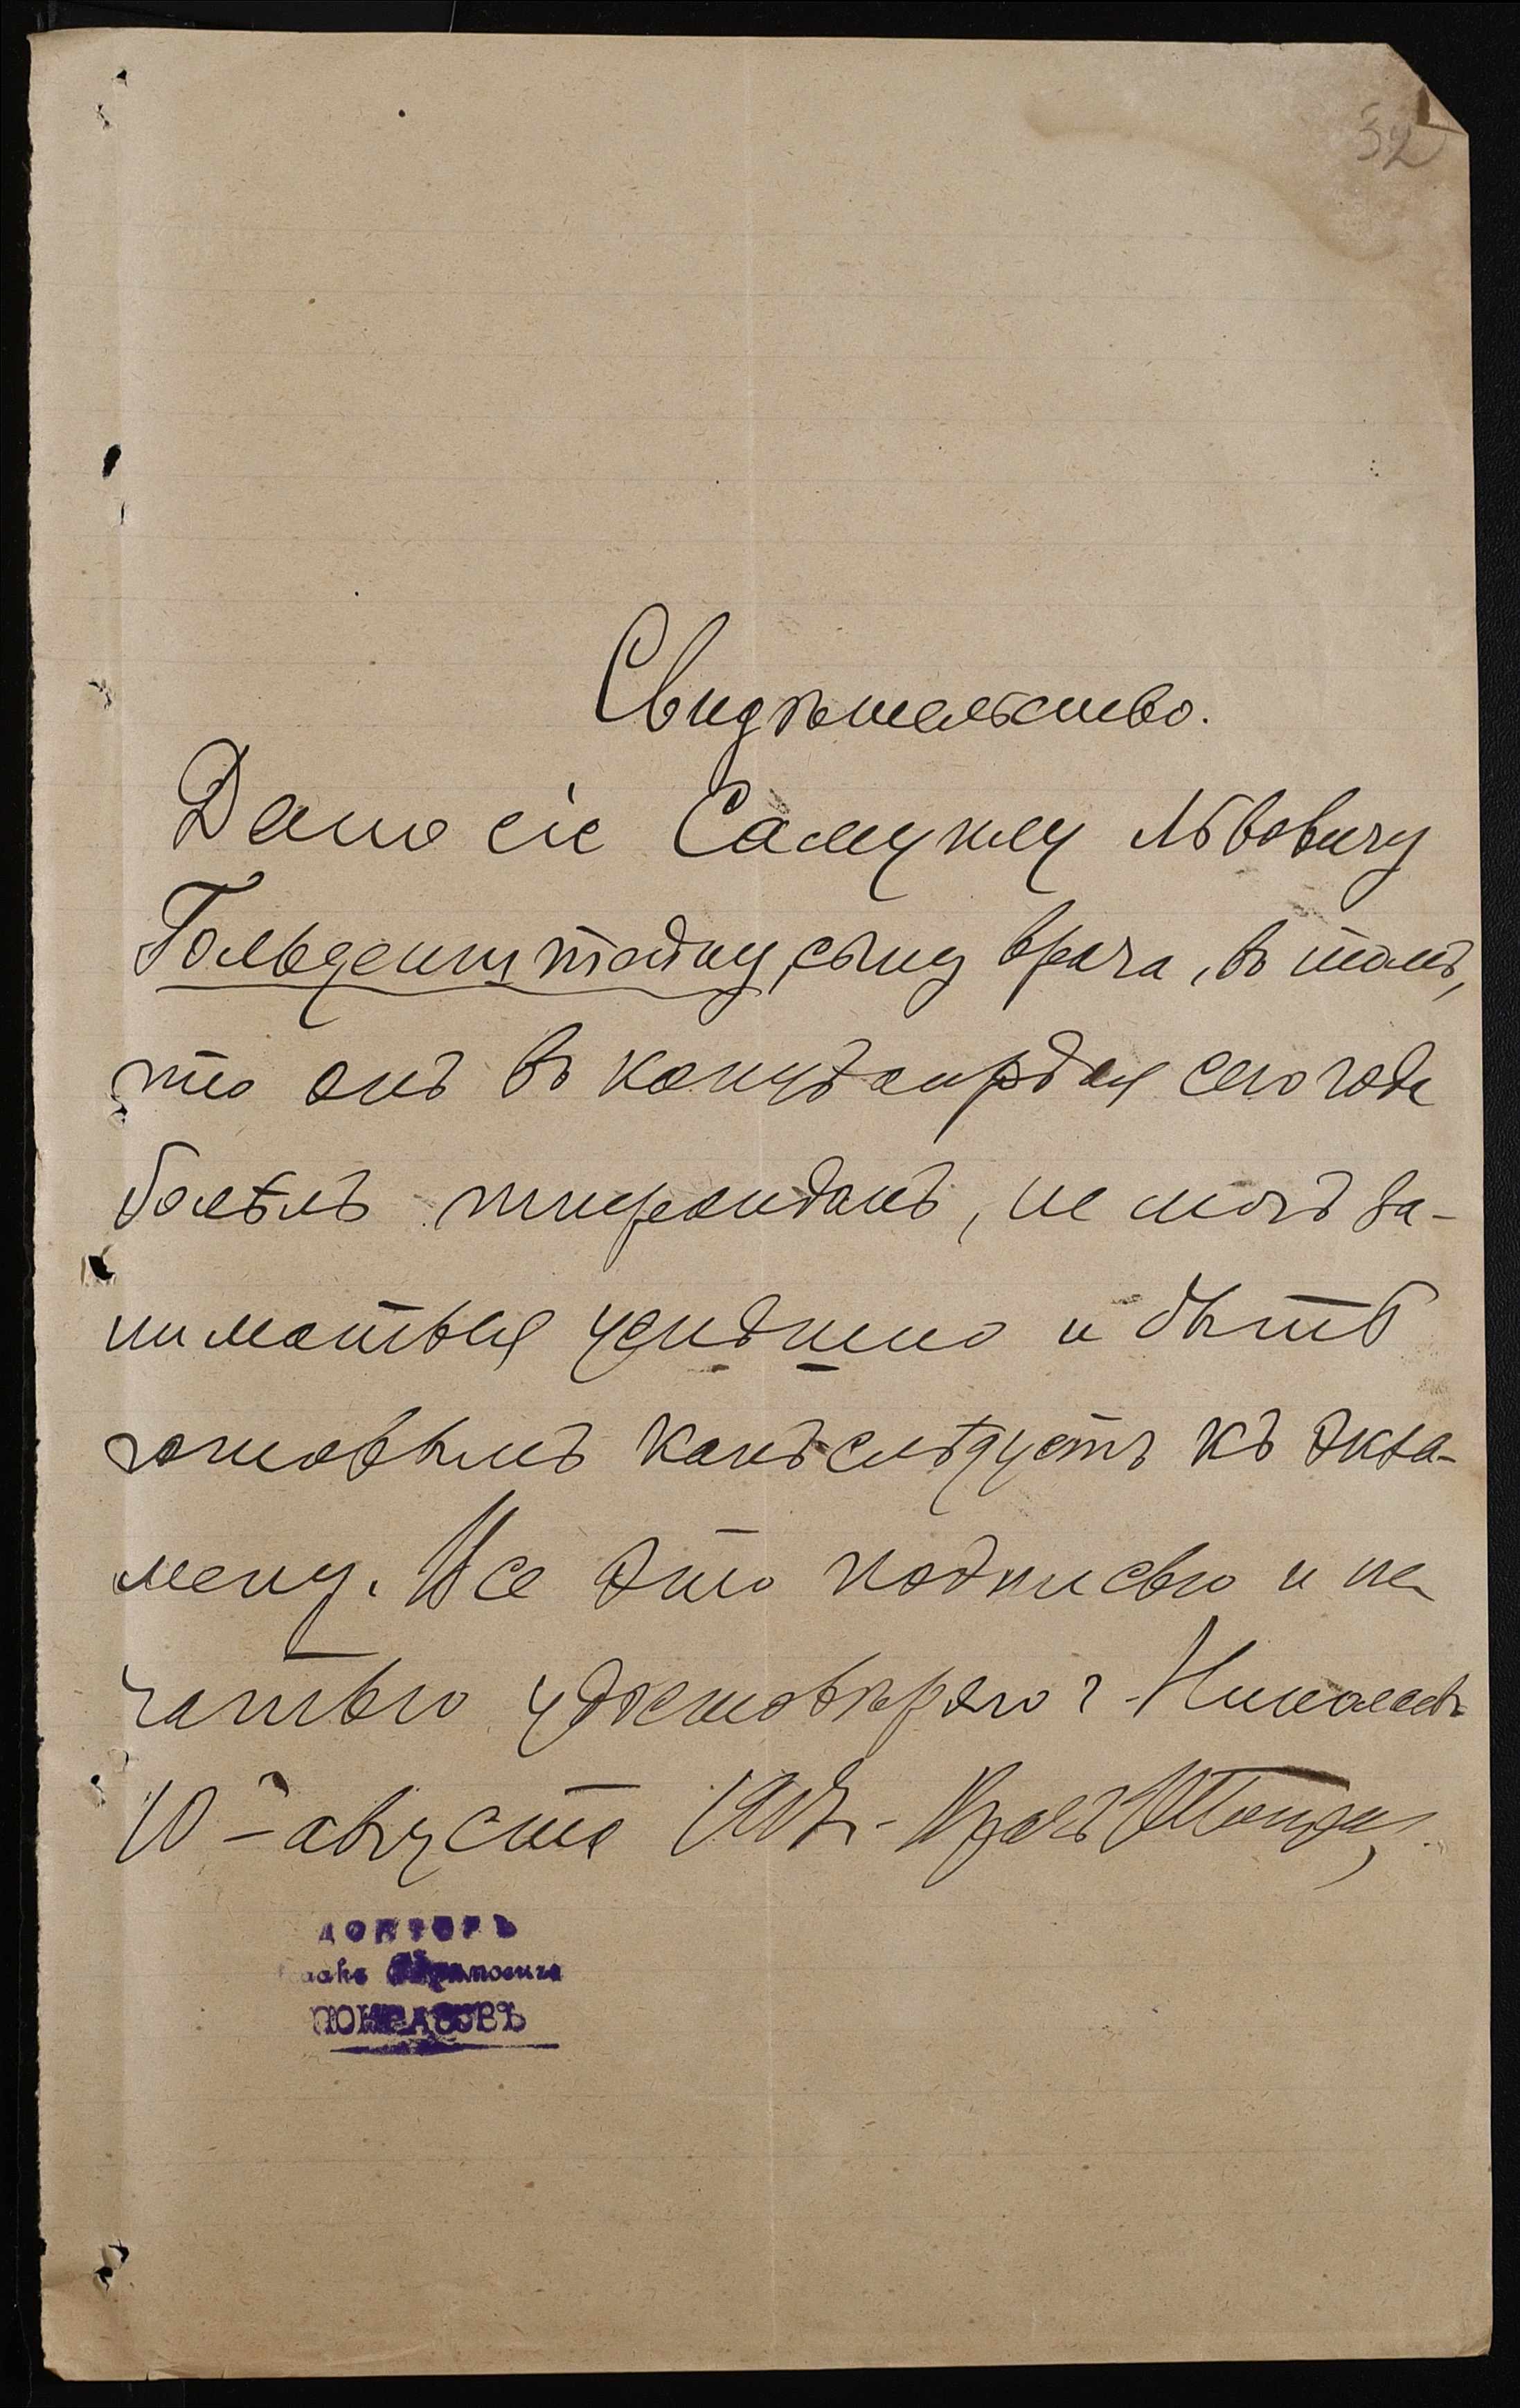 32
Свидѣтельство.
Дано сіе Самуилу Львовичу
Гольденштейну, сыну врача, въ томъ,
что онъ въ концѣ апрѣля сего года
болѣлъ тифоидомъ, не могъ за-
ниматься усидчиво и быть
готовымъ какъ слѣдуетъ къ экза-
мену. Все это подписью и пе
чатью удостовѣряю г. Николаевъ
10 - августа 1907 г. - Врачъ
ДОКТОРЪ